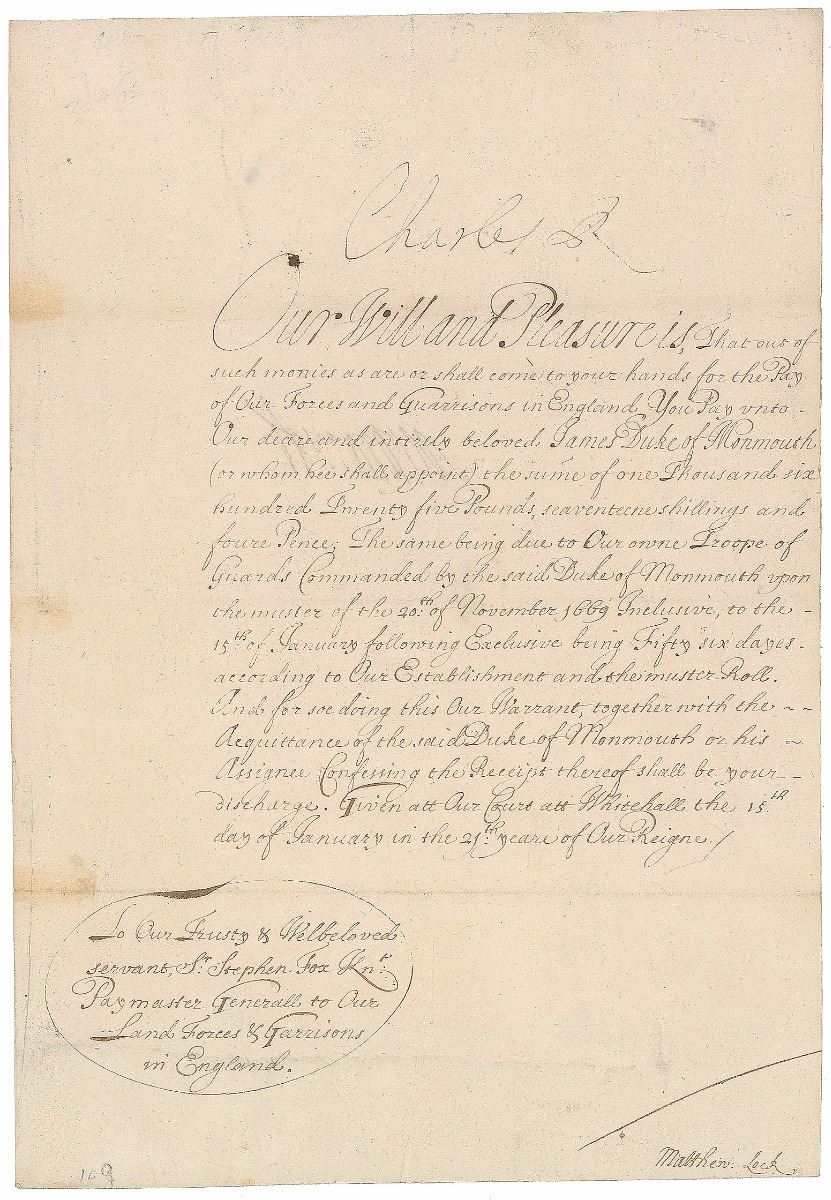 Charles R
Our Will and Pleasure is, That out of
such monies as are or shall come to your hands for the Pay
of Our Forces and Guarrisons in England, You Pay vnto -
Our deare and intirely beloved James Duke of Monmouth
(or whom hee shall appoint) the sum̄e of one Thousand six
hundred Twenty five Pounds, seaventeene shillings and
foure Pence; The same being due to Our owne Troope of
Guards Commanded by the said Duke of Monmouth vpon
the muster of the 20th. of November 1669 Inclusive, to the -
15th. of January following Exclusive being Fifty six dayes -
according to Our Establishment and the muster Roll.
And for soe doing this Our Warrant, together with the - -
Acquittance of the said Duke of Monmouth or his ~
Assignee Confessing the Receipt thereof shall be your - -
discharge. Given att Our Court att Whitehall the 15th
day of January in the 21th. yeare of Our Reigne /
To Our Trusty & Welbeloved
servant, Sr. Stephen Fox Knt.
Paymaster Generall to Our
Land Forces & Garrisons
in England.
Matthew: Lock